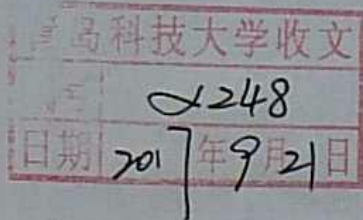 青岛科技大学收文
号 2248
日期 2017年9月21日